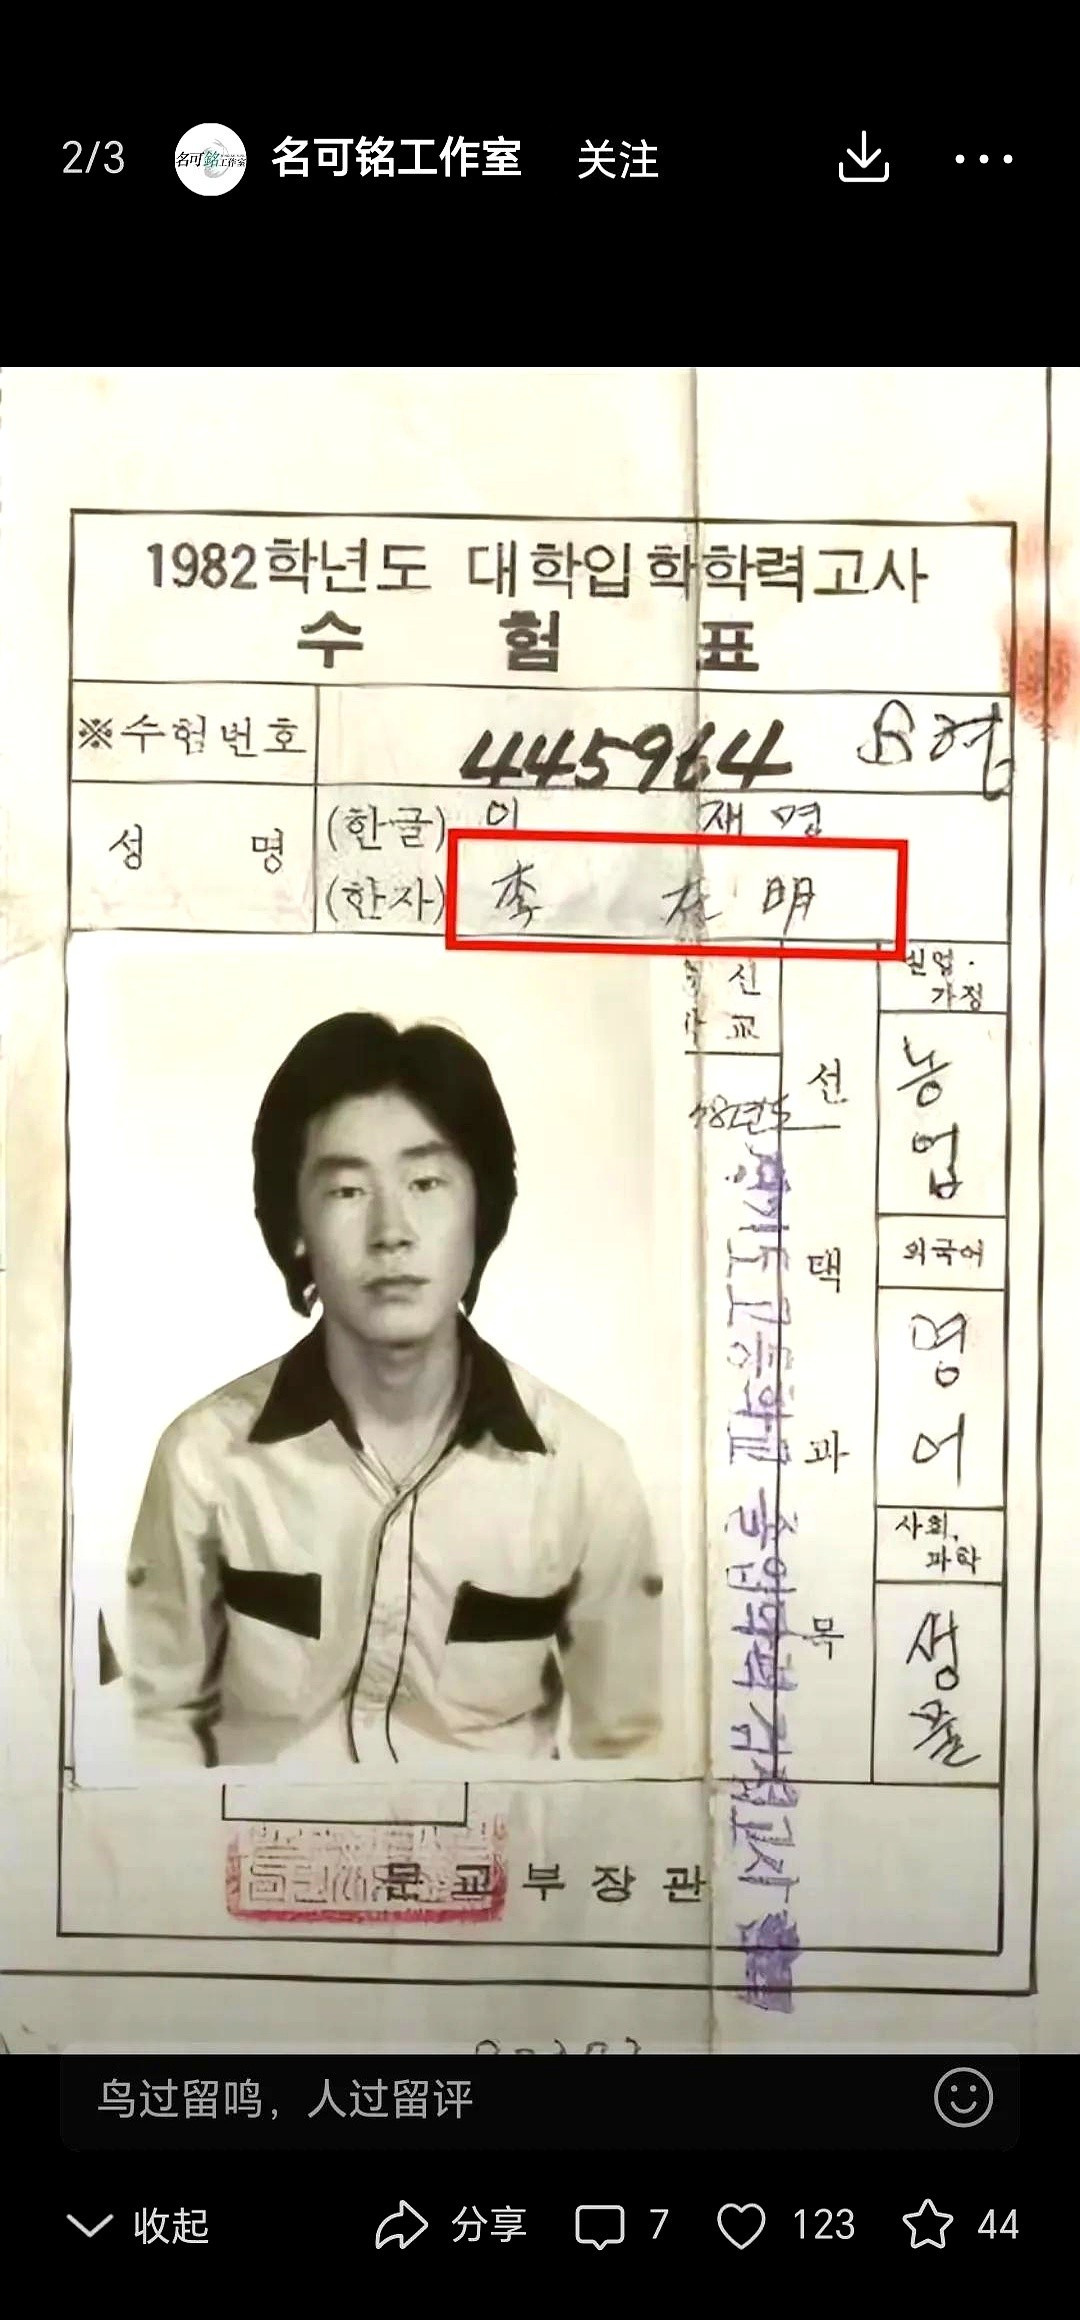 2/3 名可铭工作室 关注
名可铭工作室
1982학년도 대학입학학력고사
수 험 표
※수험번호 445964 B형
성 명 (한글) 이 재 명
(한자) 李 在 明
실업·
가정
신
교
선
농업
외국어
택
영어
과
사회,
과학
목
생물
문교부장관
鸟过留鸣，人过留评
收起 分享 7 123 44